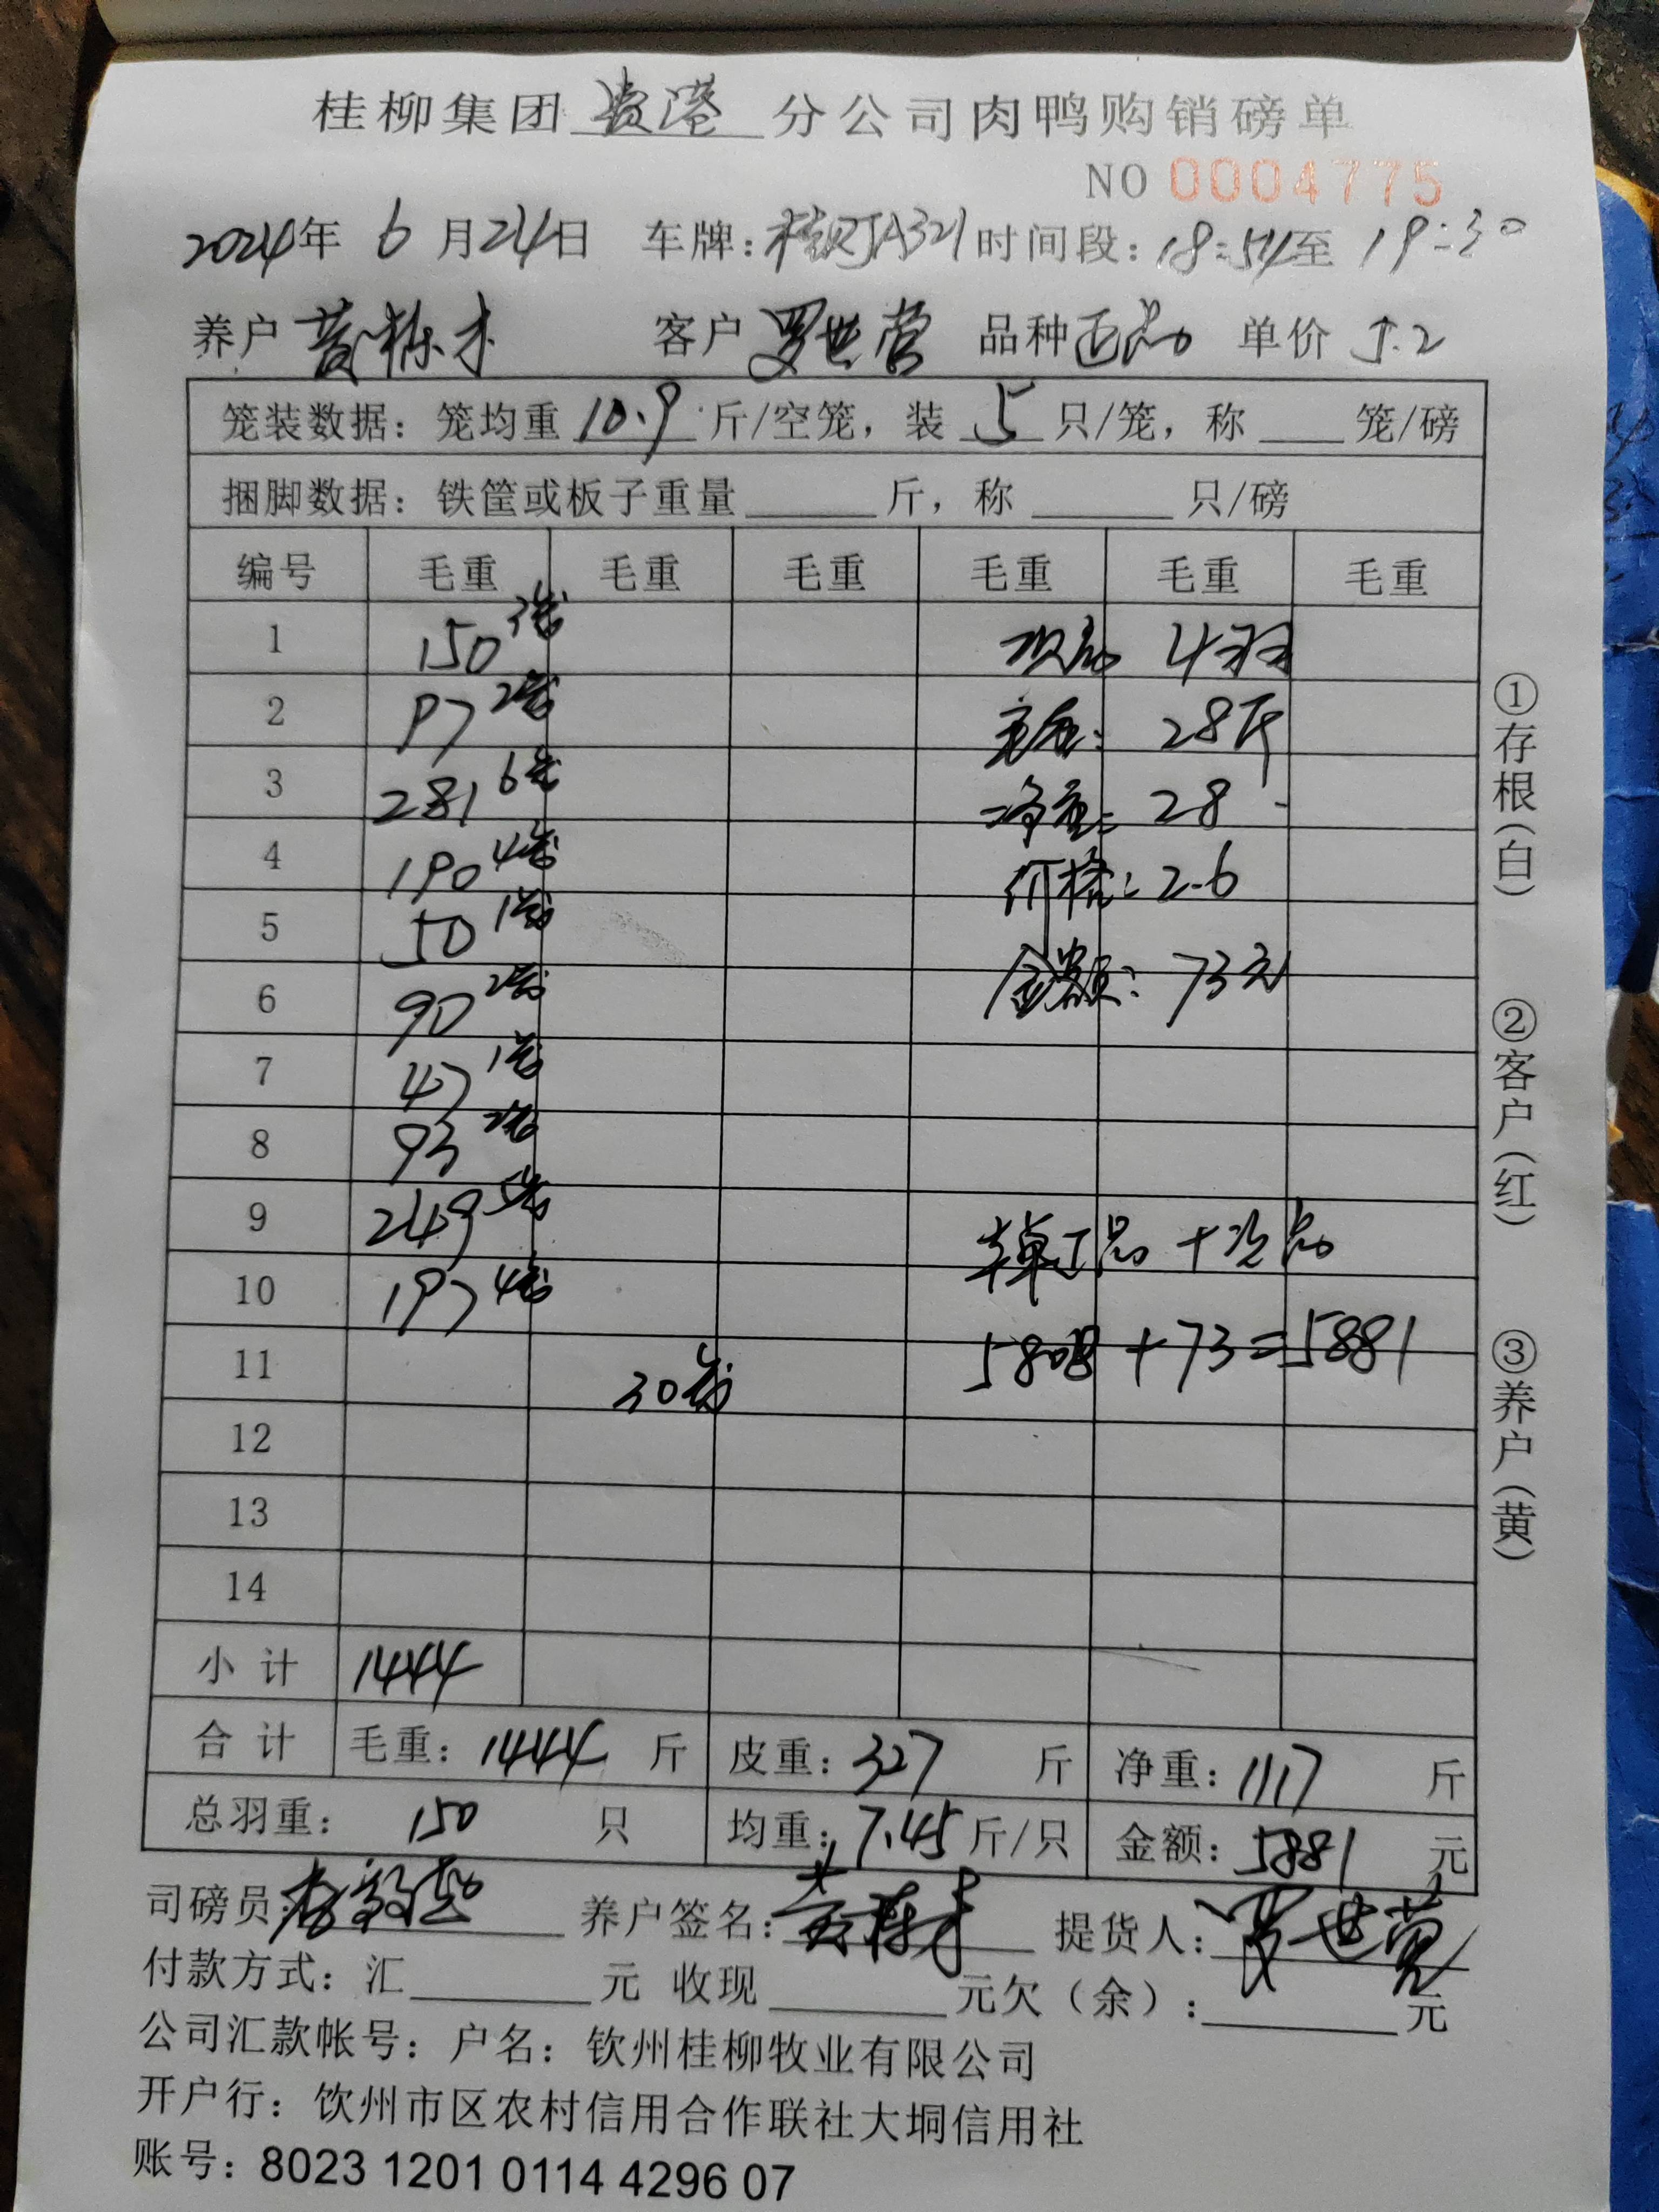 桂柳集团 贵港 分公司肉鸭购销磅单
NO 0004775
2024年 6 月24日 车牌: 桂RJA321 时间段: 18:54至 19:30
养户 黄栋才 客户 罗世营 品种 正品 单价 5.2
笼装数据: 笼均重 10.9 斤/空笼, 装 5 只/笼, 称 笼/磅
捆脚数据: 铁筐或板子重量 斤, 称 只/磅
编号 毛重 毛重 毛重 毛重 毛重 毛重
1 150 3笼 次品 4羽
2 97 2笼 毛重: 28斤
3 281 6笼 净重: 28
4 190 4笼 价格: 2.6
5 50 1笼
6 90 2笼 金额: 73元
7 47 1笼
8 93 2笼
9 249 5笼 正品 + 次品
10 197 4笼
11 30笼 5808 + 73 = 5881
12
13
14
小 计 1444
合 计 毛重: 1444 斤 皮重: 327 斤 净重: 1117 斤
总羽重: 150 只 均重: 7.45 斤/只 金额: 5881 元
司磅员: 养户签名: 黄栋才 提货人: 罗世营
付款方式: 汇 元 收现 元欠(余): 元
公司汇款帐号: 户名: 钦州桂柳牧业有限公司
开户行: 饮州市区农村信用合作联社大垌信用社
账号: 8023 1201 0114 4296 07
①存根(白)
②客户(红)
③养户(黄)